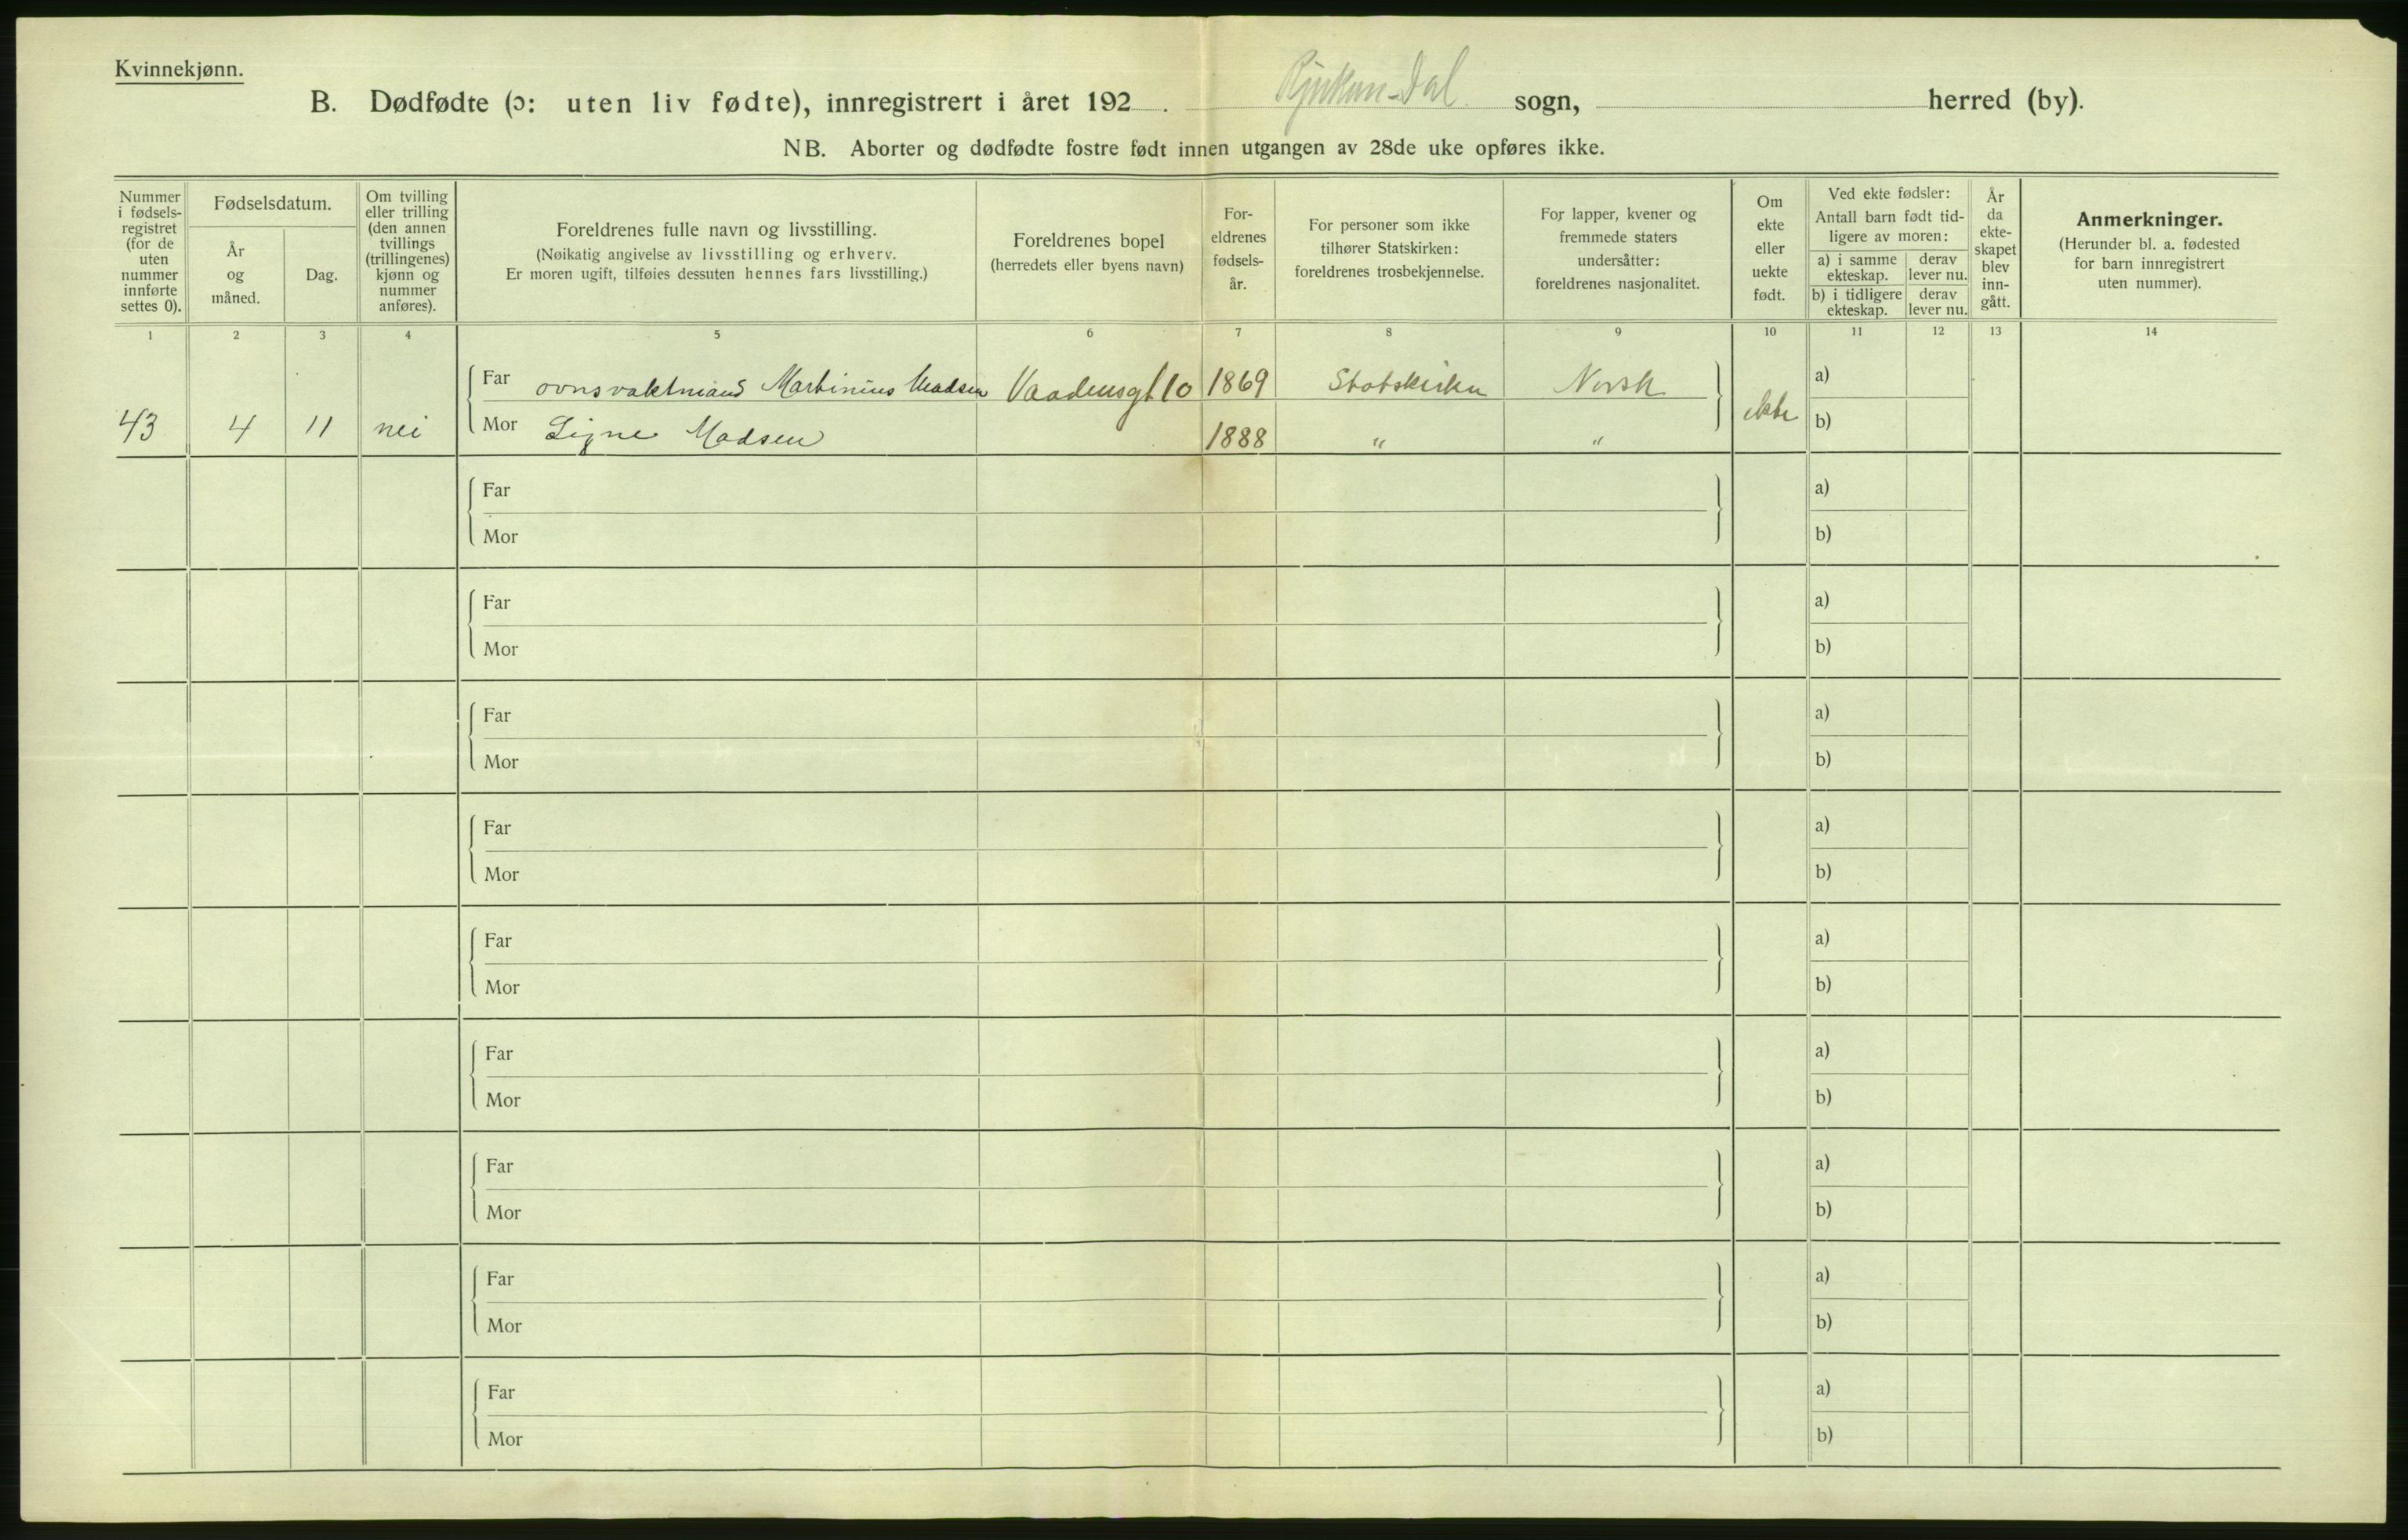 Kvinnekjønn.
B. Dødfødte (ɔ: uten liv fødte), innregistrert i året 192 . Rjukan-Dal sogn, herred (by).
NB. Aborter og dødfødte fostre født innen utgangen av 28de uke opføres ikke.
Nummer
i fødsels-
registret
(for de
uten
nummer
innførte
settes 0).
Fødselsdatum.
År
og
måned.
Dag.
Om tvilling
eller trilling
(den annen
tvillings
(trillingenes)
kjønn og
nummer
anføres).
Foreldrenes fulle navn og livsstilling.
(Nøikatig angivelse av livsstilling og erhverv.
Er moren ugift, tilføies dessuten hennes fars livsstilling.)
Foreldrenes bopel
(herredets eller byens navn)
For-
eldrenes
fødsels-
år.
For personer som ikke
tilhører Statskirken:
foreldrenes trosbekjennelse.
For lapper, kvener og
fremmede staters
undersåtter:
foreldrenes nasjonalitet.
Om
ekte
eller
uekte
født.
Ved ekte fødsler:
Antall barn født tid-
ligere av moren:
a) i samme
ekteskap.
derav
lever nu.
b) i tidligere
ekteskap.
derav
lever nu.
År
da
ekte-
skapet
blev
inn-
gått.
Anmerkninger.
(Herunder bl. a. fødested
for barn innregistrert
uten nummer).
1 2 3 4 5 6 7 8 9 10 11 12 13 14
Far ovnsvaktmand Martinius Madsen Vaadensgt 10 1869 Statskirken Norsk a)
43 4 11 nei Mor Signe Madsen 1888 " " ekte b)
Far a)
Mor b)
Far a)
Mor b)
Far a)
Mor b)
Far a)
Mor b)
Far a)
Mor b)
Far a)
Mor b)
Far a)
Mor b)
Far a)
Mor b)
Far a)
Mor b)